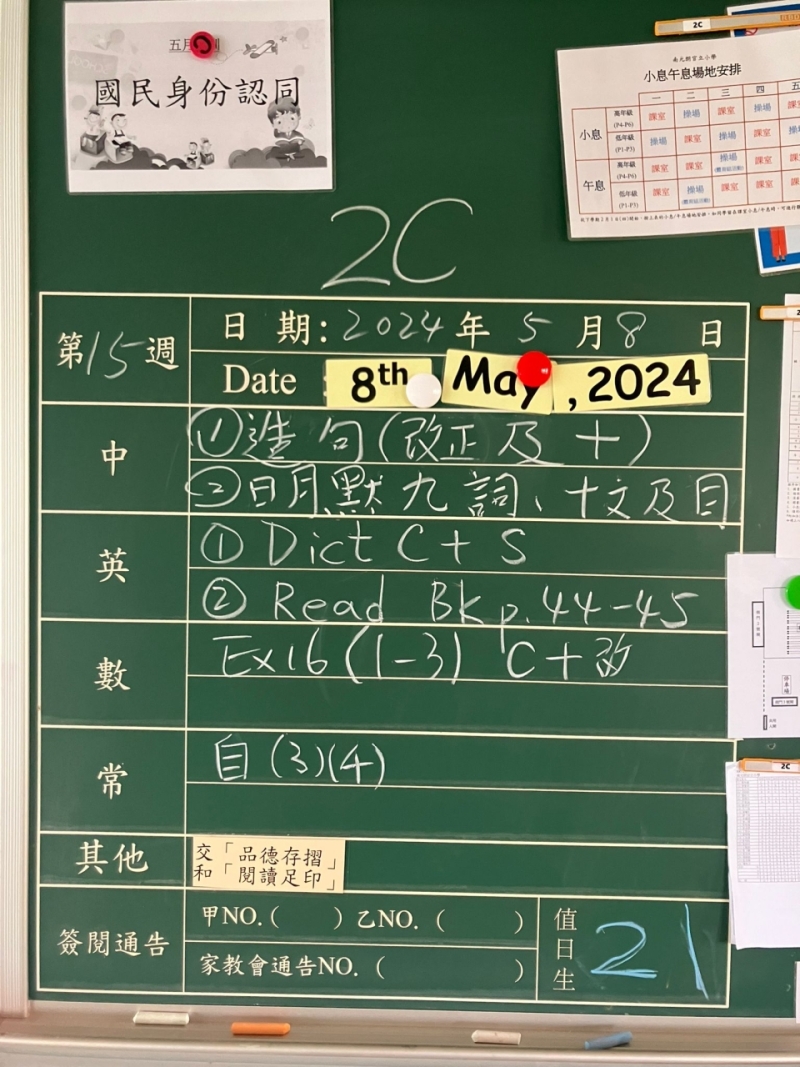 國民身份認同
2C
南元朗官立小學
小息午息場地安排
一 二 三 四 五
小息 高年級 (P4-P6) 課室 操場 課室 操場 課室
低年級 (P1-P3) 操場 課室 操場 課室 操場
午息 高年級 (P4-P6) 課室 課室 操場 課室 課室
低年級 (P1-P3) 課室 操場 課室 課室 課室
2C
第15週
日 期: 2024 年 5 月 8 日
Date : 8th May, 2024
中
①造句(改正及十)
②日月默九詞、十文及目
英
① Dict C + S
② Read Bk p.44-45
數
Ex16 (1-3) C+改
常
自 (3)(4)
其他
交「品德存摺」
和「閱讀足印」
簽閱通告
甲NO.( ) 乙NO. ( )
家教會通告NO. ( )
值日生 21
2C